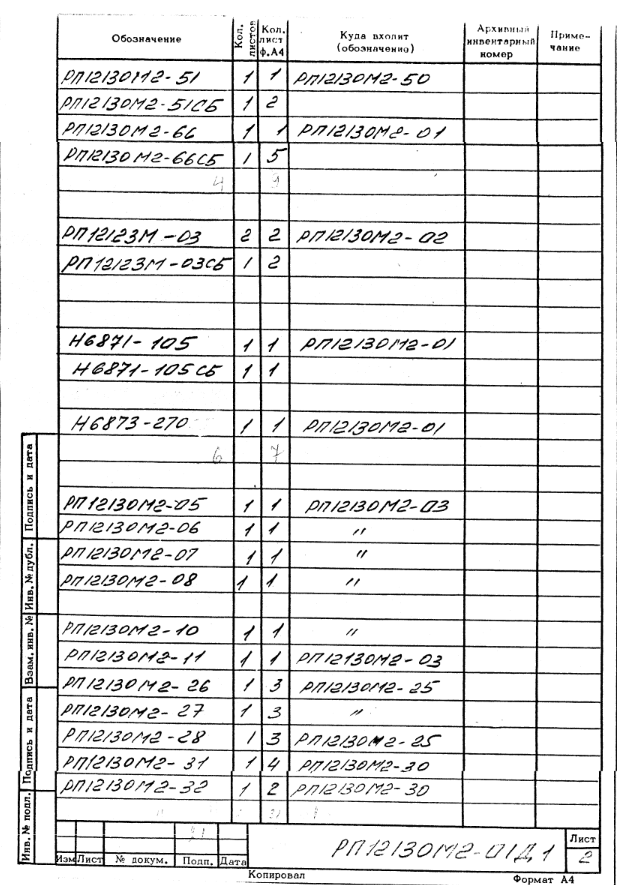 Обозначение Кол. листов Кол. лист ф.А4 Куда входит (обозначение) Архивный инвентарный номер Примечание
РП12130М2-51 1 1 РП12130М2-50
РП12130М2-51СБ 1 2
РП12130М2-66 1 1 РП12130М2-01
РП12130М2-66СБ 1 5
4 9
РП12123М-03 2 2 РП12130М2-02
РП12123М-03СБ 1 2
Н6871-105 1 1 РП12130М2-01
Н6871-105СБ 1 1
Н6873-270 1 1 РП12130М2-01
6 7
РП12130М2-05 1 1 РП12130М2-03
РП12130М2-06 1 1 "
РП12130М2-07 1 1 "
РП12130М2-08 1 1 "
РП12130М2-10 1 1 "
РП12130М2-11 1 1 РП12130М2-03
РП12130М2-26 1 3 РП12130М2-25
РП12130М2-27 1 3 "
РП12130М2-28 1 3 РП12130М2-25
РП12130М2-31 1 4 РП12130М2-30
РП12130М2-32 1 2 РП12130М2-30
Подпись и дата
Инв. № дубл.
Взам. инв. №
Подпись и дата
Инв. № подл.
Изм Лист № докум. Подп. Дата
РП12130М2-01Д1
Лист
2
Копировал Формат А4